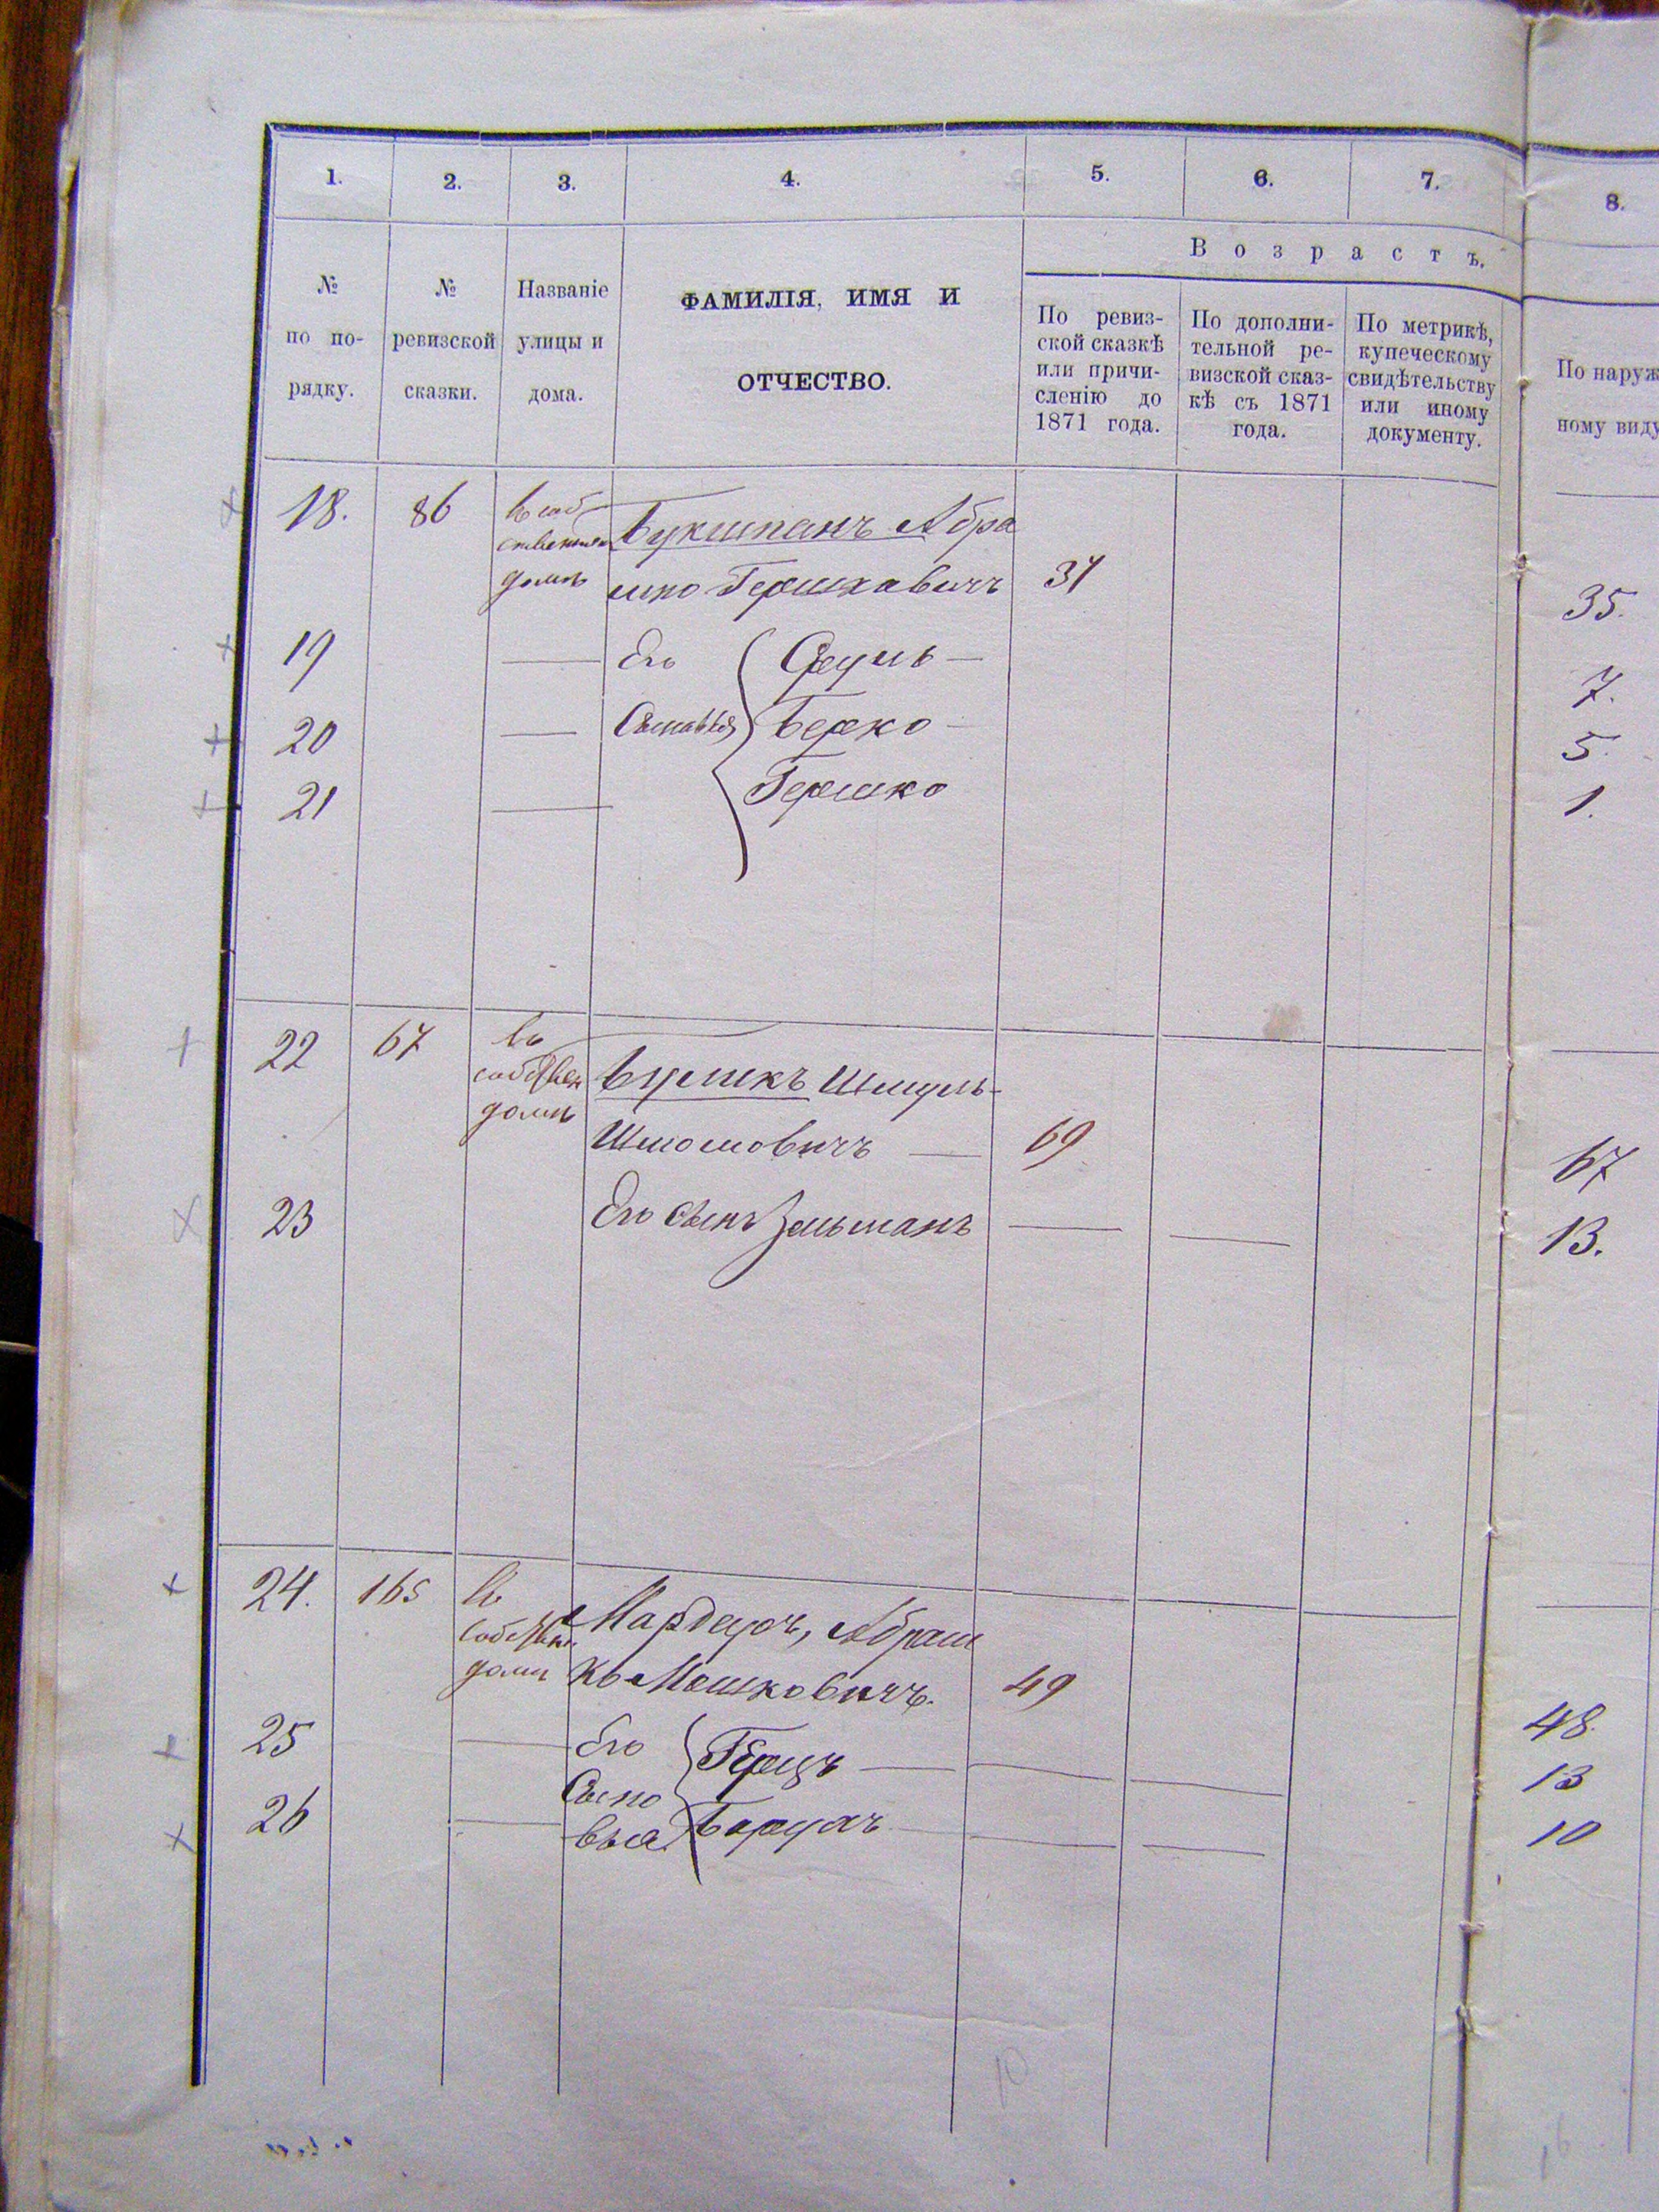 1. 2. 3. 4. 5. 6. 7. 8.
Возрастъ.
№ по по-рядку.
№ ревизской сказки.
Названіе улицы и дома.
ФАМИЛІЯ, ИМЯ И
ОТЧЕСТВО.
По ревиз-
ской сказкѣ
или причи-
сленію до
1871 года.
По дополни-
тельной ре-
визской сказ-
кѣ съ 1871
года.
По метрикѣ,
купеческому
свидѣтельству
или иному
документу.
По наруж
ному виду
18. 86 Въ соб
ственномъ Букшпанъ Абра
домѣ шко Гершковичъ 37 35.
19 Его Сруль 7.
20 Сыновья Берко 5.
21 Гершко 1.
22 67 Въ
собствен Бурикъ Шмуль
домѣ
Шліомовичъ 69 67
23 Его сынъ Зельманъ 13.
24. 165 Въ
собствен Мардеръ, Абраш
домѣ ко Мошковичъ. 49 48.
25 Его Герцъ 13
26 Сыно
вья Борухъ 10
10